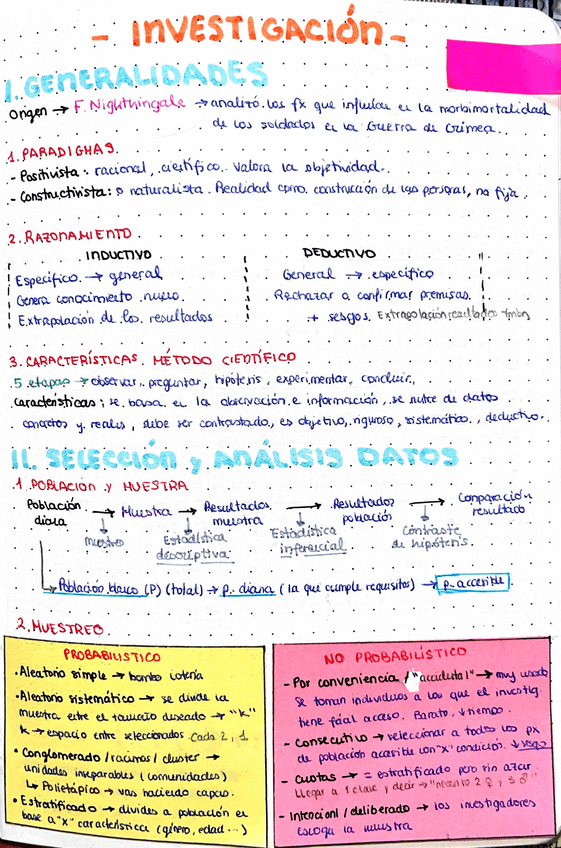 - INVESTIGACIÓN -
I. GENERALIDADES
Origen → F. Nightingale → analizó los fx que influían en la morbimortalidad
de los soldados en la Guerra de Crimea.
1. PARADIGMAS.
- Positivista: racional, científico. Valora la objetividad.
- Constructivista: o naturalista. Realidad como construcción de las personas, no fija.
2. RAZONAMIENTO.
INDUCTIVO
Específico → general
Genera conocimiento nuevo.
Extrapolación de los resultados
DEDUCTIVO
General → específico
Rechazar o confirmar premisas.
+ sesgos. Extrapolación resultados tmbn
3. CARACTERÍSTICAS MÉTODO CIENTÍFICO
5 etapas → observar, preguntar, hipótesis, experimentar, concluir.
Características: se basa en la observación e información, se nutre de datos
concretos y reales, debe ser contrastado, es objetivo, riguroso, sistemático, deductivo.
II. SELECCIÓN y ANÁLISIS DATOS
1. POBLACIÓN y MUESTRA
Población diana → Muestra → Resultados muestra → Resultados población → Comparación resultado
muestreo
Estadística descriptiva
Estadística inferencial
Contraste de hipótesis
Población blanco (P) (total) → p. diana (la que cumple requisitos) → p. accesible
2. MUESTREO.
PROBABILISTICO
• Aleatorio simple → bombo lotería
• Aleatorio sistemático → se divide la
muestra entre el tamaño deseado → "k"
k → espacio entre seleccionados. Cada 2, 1
• Conglomerado / racimos / cluster →
unidades inseparables (comunidades)
↳ Polietápico → vas haciendo capas.
• Estratificado → divides a población en
base a "x" característica (género, edad...)
NO PROBABILÍSTICO
- Por conveniencia / "accidental" → muy usado
Se toman individuos a los que el investig.
tiene fácil acceso. Barato, ↓ tiempo.
- Consecutivo → seleccionar a todos los px
de población accesible con "x" condición. ↓ sesgo
- Cuotas → = estratificado pero sin azar.
Llegar a 1 clase y decir → "necesito 2 ♀ y 3 ♂"
- Intencional / deliberado → los investigadores
escogen la muestra